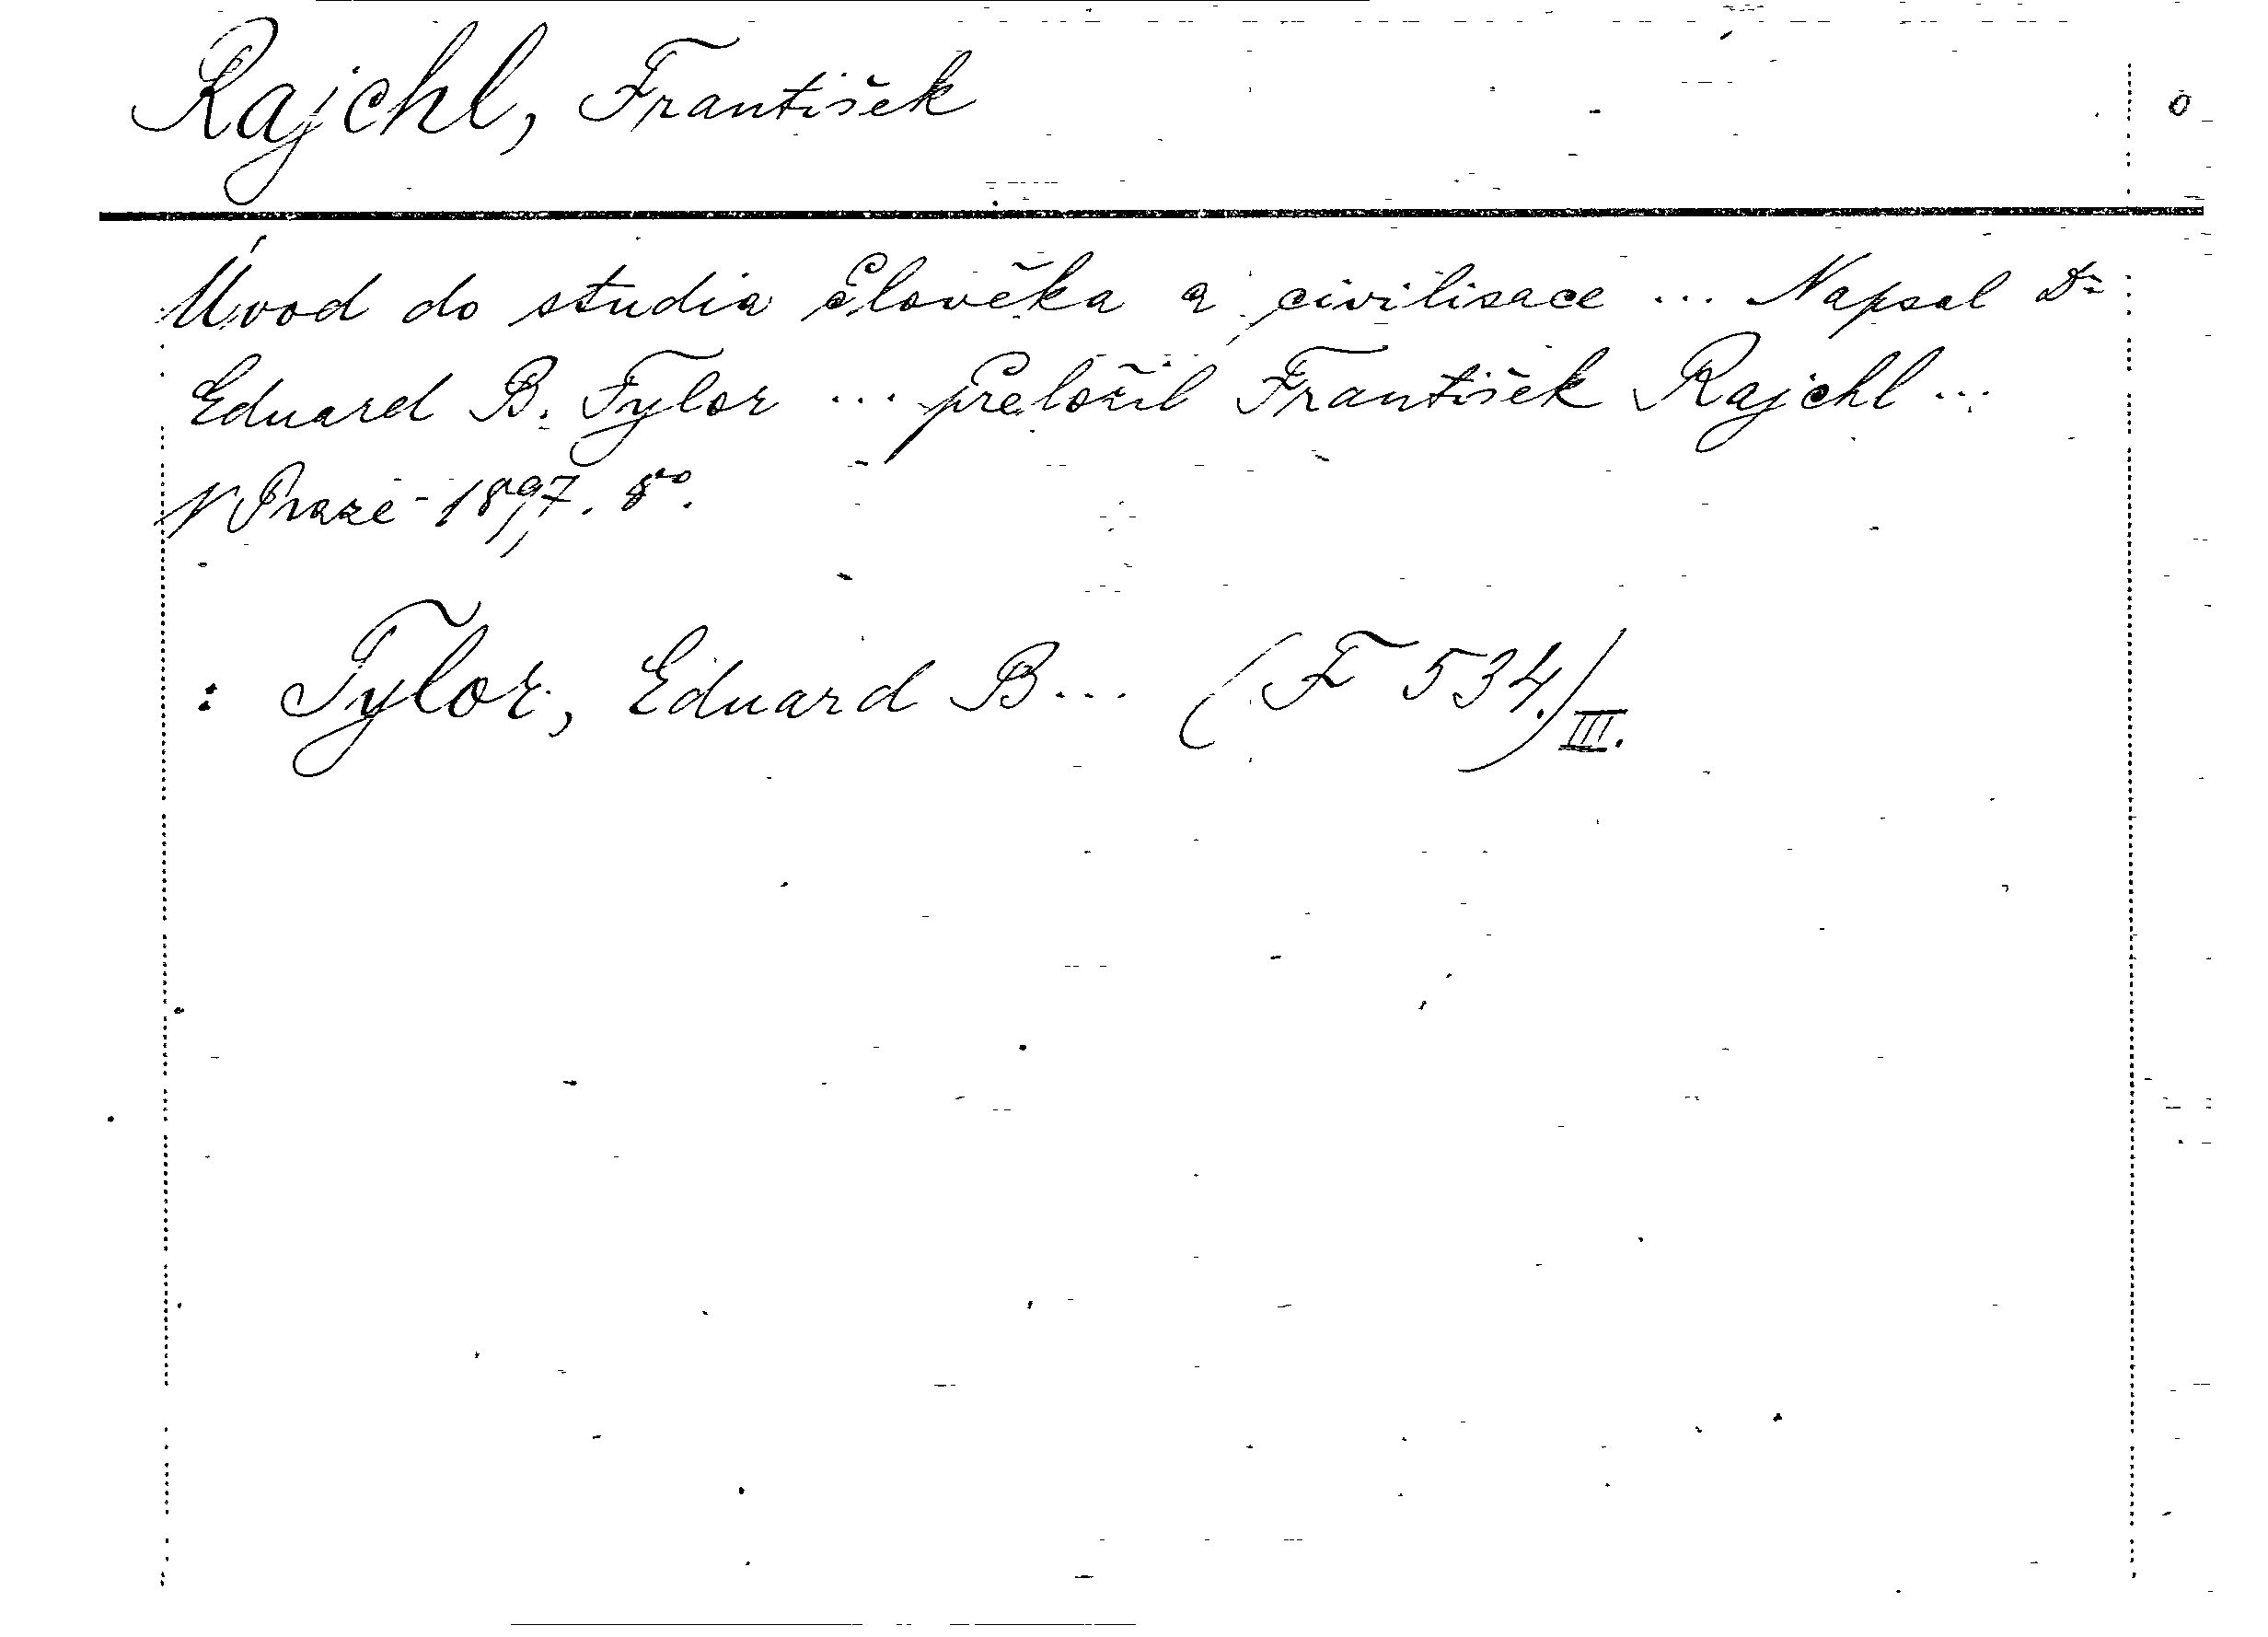 Rajchl, František
o
Úvod do studia člověka a civilisace ... Napsal Dr
Eduard B. Tylor ... preložil František Rajchl ...
V Praze - 1897. 8º.
: Tylor, Eduard B... (F 534.) III.